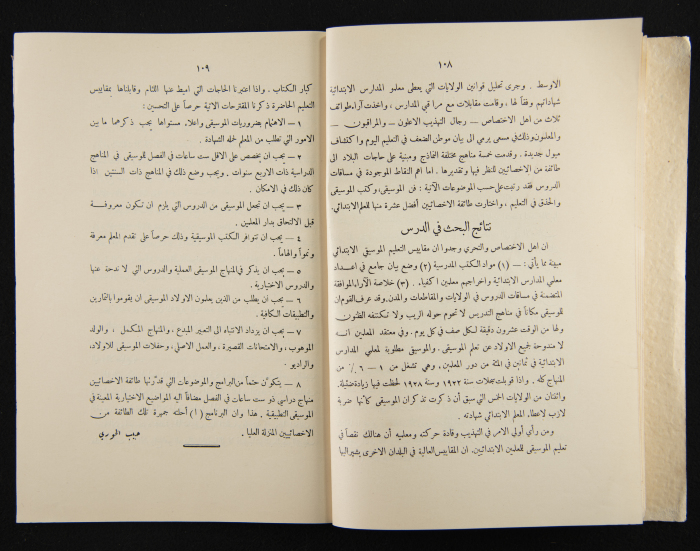 ١٠٨
الاوسط . وجرى تحليل قوانين الولايات التي يعطى معلمو المدارس الابتدائية
شهاداتهم وفقاً لها ، وقامت مقابلات مع مراقبي المدارس ، واخذت آراء طوائف
ثلاث من اهل الاختصاص – رجال التهذيب الاعلون – والمراقبون –
والمعلمون وذلك في مسعى يرمي الى بيان موطن الضعف في التعليم اليوم واكتشاف
ميول جديدة . وقدمت خمسة مناهج مختلفة النماذج ومبنية على حاجات البلاد الى
طائفة من الاخصائيين للنظر فيها وتقديرها . اما اهم النقاط الموجودة في مساقات
الدروس فقد رتبت على حسب الموضوعات الآتية : فن الموسيقى ، وكتب الموسيقى
والحذق في التعليم ، واختارت طائفة الاخصائيين أفضل عشرة منها للعلم الابتدائي .
نتائج البحث في الدرس
ان اهل الاختصاص والتحري وجدوا ان مقاييس التعليم الموسيقي الابتدائي
مبينة بما يأتي : – (١) مواد الكتب المدرسية (٢) وضع بيان جامع في اعداد
معلمي المدارس الابتدائية واخراجهم معلمين اكفياء . (٣) خلاصة الآراء الموافقة
المتضمنة في مساقات الدروس في الولايات والمقاطعات والمدن وقد عرف القوم ان
للموسيقى مكاناً في مناهج التدريس لا تحوم حوله الريب ولا تكتنفه الظنون
ولها من الوقت عشرون دقيقة لكل صف في كل يوم . وفي معتقد المعلمين انه
لا مندوحة لجميع الاولاد عن تعلم الموسيقى . والموسيقى مطلوبة لمعلمي المدارس
الابتدائية في ثمانين في المئة من دور المعلمين ، وهي تشغل من ١ – ٦ ٪ من
المنهاج كله . واذا قوبلت سجلات سنة ١٩٢٢ وسنة ١٩٢٨ لحظت فيها زيادة ضئيلة .
واثنتان من الولايات الخمس التي سبق أن ذكرت تذكران الموسيقى كأنها ضربة
لازب لاعطاء المعلم الابتدائي شهادته .
ومن رأي أولي الامر في التهذيب وقادة حركته ومعلميه أن هنالك نقصاً في
تعليم الموسيقى للمعلمين الابتدائيين . ان المقاييس العالية في البلدان الاخرى يشير اليها
١٠٩
كبار الكتاب . واذا اعتبرنا الحاجات التي اميط عنها اللثام وقابلناها بمقاييس
التعليم الحاضرة ذكرنا المقترحات الاتية حرصاً على التحسين :
١ – الاهتمام بضروريات الموسيقى واعلاء مستواها يجب ذكرهما ما بين
الامور التي تطلب من المعلم لحمله الشهادة .
٢ – يجب ان يخصص على الاقل ست ساعات في الفصل للموسيقى في المناهج
الدراسية ذات الاربع سنوات . ويجب وضع ذلك في المناهج ذات السنتين اذا
كان ذلك في الامكان .
٣ – يجب ان تجعل الموسيقى من الدروس التي يلزم ان تكون معروفة
قبل الالتحاق بدار المعلمين .
٤ – يجب ان تتوافر الكتب الموسيقية وذلك حرصاً على تقدم المعلم معرفة
ونمواً والهاماً .
٥ – يجب ان يذكر في المنهاج الموسيقى العملية والدروس التي لا ندحة عنها
والدروس الاختيارية .
٦ – يجب ان يطلب من الذين يعلمون الاولاد الموسيقى ان يقوموا بالتمارين
والتطبيقات الكافية .
٧ – يجب ان يزداد الانتباه الى التعبير المبدع . والمنهاج المكمل ، والولد
الموهوب ، والامتحانات القصيرة . والعمل الاصلي ، وحفلات الموسيقى للاولاد ،
والراديو .
٨ – يتكون حتماً من البرامج والموضوعات التي قدّرتها طائفة الاخصائيين
منهاج دراسي ذو ست ساعات في الفصل مضافاً اليه المواضيع الاختيارية المعينة في
الموسيقى التطبيقية . هذا وان البرنامج (١) أحلته جميرة تلك الطائفة من
الاخصائيين المنزلة العليا .
حبيب الخوري